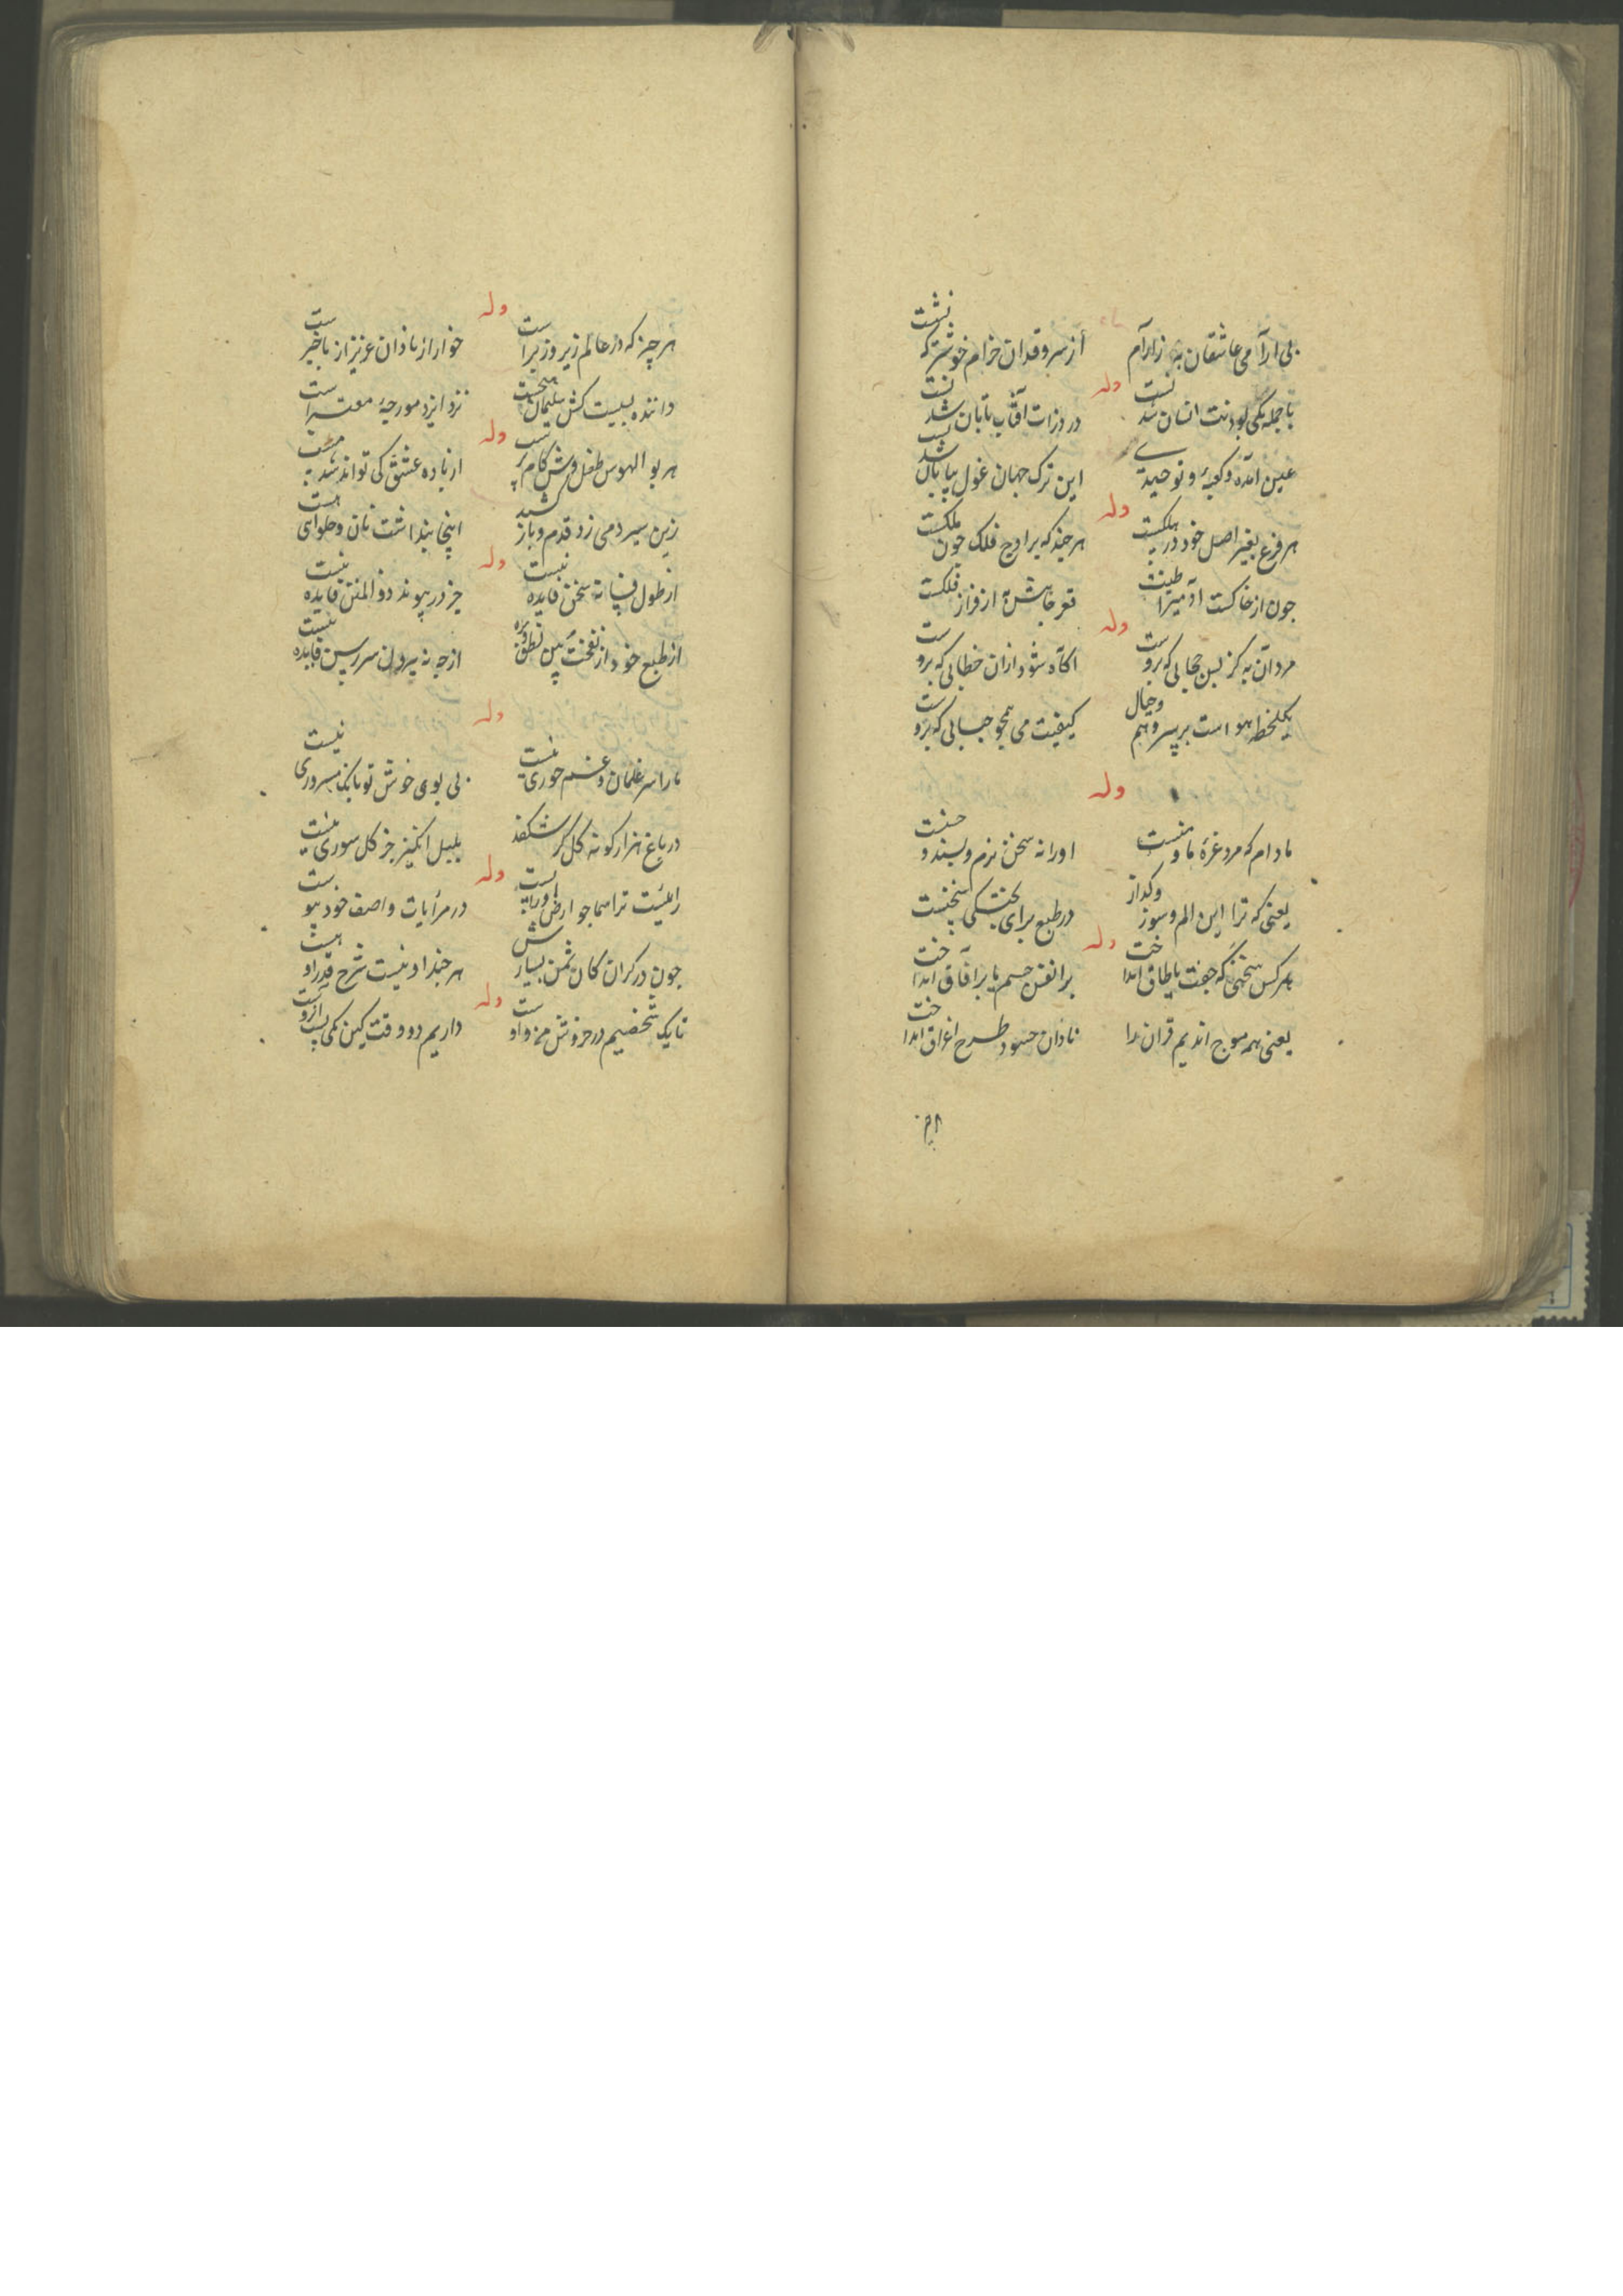 بی ارآمی عاشقان به زارآم
از سرو قدان خرام خوشتر که نشست
وله
با جمله یکی بود نت انسان شد
در ذرات آفتاب تابان شد
عین آمده و کعبه و توحید
این ترک جهان غول بیابان شد
وله
هر فرع بغیر اصل خود در هلکست
هر چند که بر اوج فلک چون ملکست
چون از خاکست آدمیرا طینت
قعر جاهش به از فراز فلکست
وله
مرد آن به کز پس حجابی که بروست
اکاه شود ازان خطابی که بروست
یکلحظه هواست بر سر وهم وخیال
کیفیت می همچو حبابی که بروست
وله
مادام که مرد غره ما و منست
اورا نه سخن نرم و پسند و حسنست
یعنی که ترا این الم وسوز وکداز
در طبع برای پختگی سخنست
وله
بهر کس سخنی که جفت یا طاق انداخت
بر انفس جسم یا بر آفاق انداخت
یعنی همه موج اندیم قران را
نادان حسود طرح اغراق انداخت
وله
هر چیز که در عالم زیر و زبر است
خوار از نادان عزیز از باخبر است
داننده بسیست کش سلیمان سخنست
نزد ایزد مورچه معتبر است
وله
هر بوالهوس طفل وش کام پرست
از باده عشق کی تواند شد مست
زین سیر دمی زد قدم و باز کشید
اینجا پنداشت نان و حلوای هست
وله
از طول فسانه سخن فایده نیست
جز در پیوند ذو المنن فایده نیست
از طبع خود از نفخت بین نطق وزه
از چه نه بیرون سر رسن فایده نیست
وله
مارا سر غلمان و غم حوری نیست
بی بوی خوش تو بانک مسروری نیست
در باغ هزار کونه کل کر شکفد
بلبل انکیز جز کل سوری نیست
وله
در مرآیات واصف خود
چون در کران کان ثمن بسیارش
هر چند او نیست شرح قدر او هست
وله
تا یک شخصیم در خروش من و اوست
داریم دو وقت کین یکی